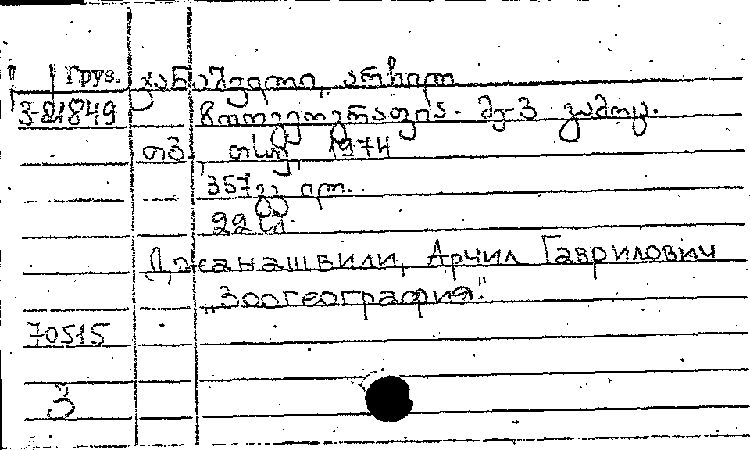 Груз. ჯანაშვილი, არჩილ
3-21849 ზოოგეოგრაფია. მე-3 გამოც.
თბ., თსუ, 1974
357 გვ. ილ.
22 სმ.
Джанашвили, Арчил Гаврилович
"Зоогеография."
70515
З